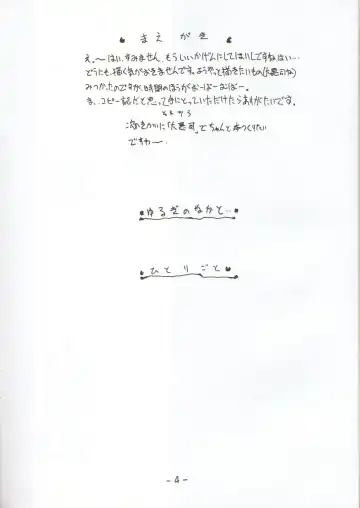 まえがき
え、〜はい、すみません、もういいかげんにしてほしいですねはい…
どうにも、描く気がおきませんです。ようやっと描きたいもの(大悪司な)
みつかったのですが、時間のほうがおーばーむーばー。
ま、コピー誌だと思って手にとっていただけたらありがたいです。
次きかいに「大悪司」でちゃんと本つくりたい
ですわー。
ゆるぎのなかと…
ひとりごと
-4-